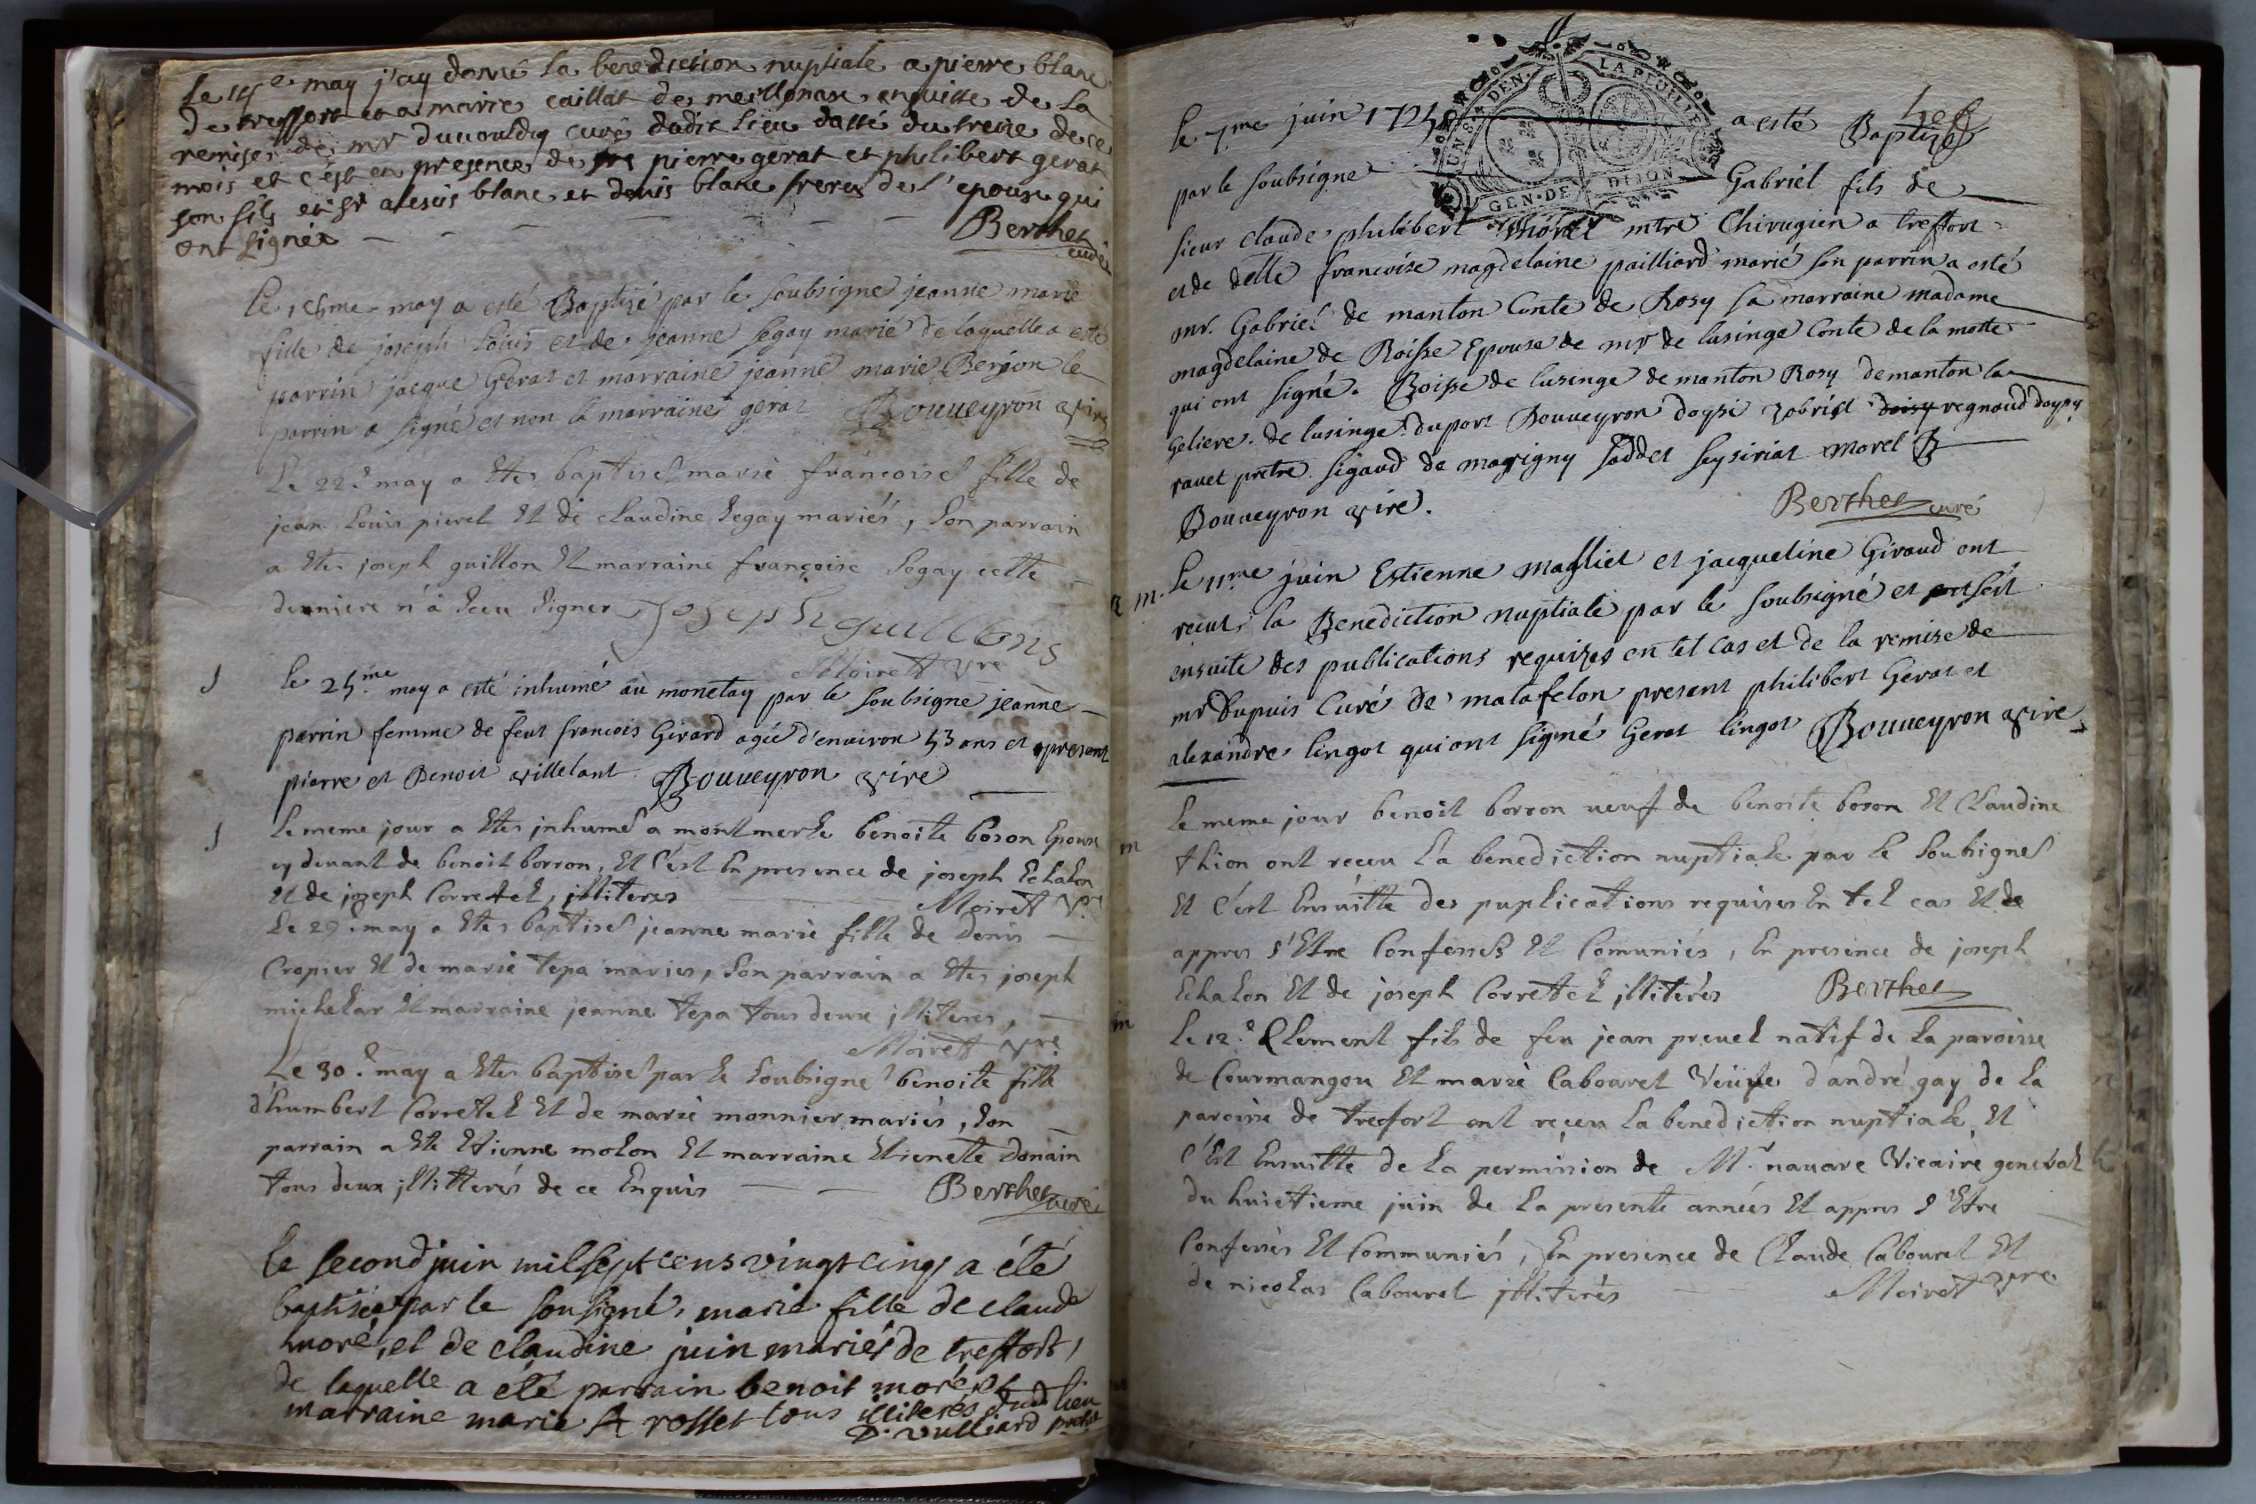 Le 15e may j'ay donné la benediction nuptiale a pierre blanc
de treffort et a marie caillat de meillonax ensuitte de la
remise de mr ducouldy curé dudit lieu datté du treize de ce
mois et c'est en presence de pierre gerat et philibert gerat
son fils et sr alexis blanc et denis blanc freres de l'epoux qui
ont signés
Berthet
curé
Le 15me may a esté Baptizé par le soubsigne jeanne marie
fille de joseph Louis et de jeanne segay marié de laquelle a esté
parrin jacque Gerat et marraine jeanne marie Berjon le
parrin a signé et non la marraine gerat Bouueyron vire
Le 22e may a etes baptisé marie françoise fille de
jean Louis pievel et de claudine Segay mariés, son parrain
a etes joseph guillon et marraine françoise Segay cette
derniere n'à sceu signer joseph guillons
Moiret vre
le 25me may a esté inhumé au monetay par le soubsigne jeanne
parrin femme de feut francois Girard agée d'environ 53 ans et present
pierre et Benoit villetant Bouueyron vire
Le meme jour a etes inhumé a montmerle benoite boson Epouse
cy devant de benoit borron, et c'est En presence de joseph Echalon
et de joseph Corretel, illiteres
Moiret vre
Le 29e may a etes baptisé jeanne marie fille de Denis
Cropier et de marie tepa maries, son parrain a etes joseph
michelar et marraine jeanne tepa tous deux illiteres,
Moiret vre
Le 30e may a etes baptisé par le soubsigné benoite fille
d'humbert Corretel et de marie monnier mariés, son
parrain a ete etienne molon et marraine etienete donain
tous deux illitterés de ce Enquis
Berthet curé
le second juin mil sept cens vingt cinq a été
baptisée par le sousigné, marie fille de claude
moré, et de claudine juin mariés de treffort,
de laquelle a été parrain benoit moré et
marraine marie rosset tous illiterés dud lieu
vulliard pretre
le 7me juin 1725 a esté Baptizé
par le soubsigne Gabriel fils de
UNS. DEN. LA PEUILLE
GEN. DE DIJON
sieur claude philibert Morel mtre Chirugien a treffort
et de delle francoise magdelaine pailliard marié son parrin a esté
mr. Gabriel de manton Conte de Rosy sa marraine madame
magdelaine de Roisse Epouse de mr de lusinge Conte de la motte
qui ont signé. Roisse de lusinge de manton Rosy demanton la
Geliere. de lusinge. duport Bouueyron doysi regnaud doysy
ravet pretre sigaud de marigny soddet seysiriat morel
Bouueyron vire.
Berthet curé
m. Le 11me juin Estienne magliet et jacqueline Giraud ont
recut la Benediction nuptiale par le soubsigné et c'est
ensuite des publications requizes en tel cas et de la remise de
mr Dupuis Curé de matafelon present philibert Gerat et
alexandre lingot qui ont signé Gerat lingot Bouueyron vire
m
le meme jour benoit borron ueuf de benoite boson et Claudine
thion ont receu La benediction nuptiale par le soubsigné
et c'est Ensuitte des puplications requises En tel cas et de
appres s'etre Confessés et Comuniés, En presence de joseph
Echalon et de joseph Corretel illiterés Berthet
m
Le 12e Clement fils de feu jean prevel natif de la paroisse
de Courmangou et marie Cabouret Veuve d'andré gay de la
paroisse de trefort ont reçeu la benediction nuptiale, et
c'est Ensuitte de la permission de Mr navare Vicaire general
du huictieme juin de la presente années et appres s'etre
Confessés et Communiés, En presence de Claude Cabouret et
de nicolas Cabouret illiterés Moiret vre